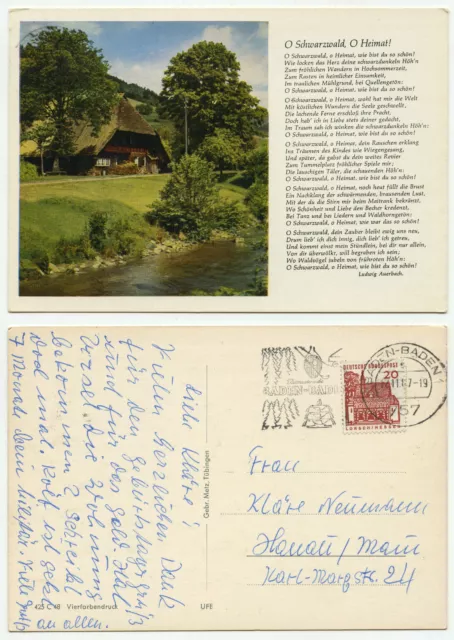 O Schwarzwald, O Heimat!
O Schwarzwald, o Heimat, wie bist du so schön!
Wie locken das Herz deine schwarzdunkeln Höh'n
Zum fröhlichen Wandern in Hochsommerzeit,
Zum Rasten in heimlicher Einsamkeit,
Im traulichen Mühlgrund, bei Quellengetön:
O Schwarzwald, o Heimat, wie bist du so schön!
O Schwarzwald, o Heimat, wohl hat mir die Welt
Mit köstlichen Wundern die Seele geschwellt,
Die lachende Ferne erschloß ihre Pracht,
Doch hab' ich in Liebe stets deiner gedacht,
Im Traum sah ich winken die schwarzdunkeln Höh'n:
O Schwarzwald, o Heimat, wie bist du so schön!
O Schwarzwald, o Heimat, dein Rauschen erklang
Ins Träumen des Kindes wie Wiegengesang,
Und später, da gabst du dein weites Revier
Zum Tummelplatz fröhlicher Spiele mir;
Die lauschigen Täler, die schauenden Höh'n:
O Schwarzwald, o Heimat, wie bist du so schön!
O Schwarzwald, o Heimat, noch heut füllt die Brust
Ein Nachklang der schwärmenden, brausenden Lust,
Mit der du die Stirn mir beim Maitrank bekränzt,
Wo Schönheit und Liebe den Becher kredenzt,
Bei Tanz und bei Liedern und Waldhorngetön:
O Schwarzwald, o Heimat, wie war das so schön!
O Schwarzwald, dein Zauber bleibt ewig uns neu,
Drum lieb' ich dich innig, dich lieb' ich getreu,
Und kommt einst mein Stündlein, bei dir nur allein,
Von dir überwölbt, will begraben ich sein;
Wo Waldvögel jubeln von frühroten Höh'n:
O Schwarzwald, o Heimat, wie bist du so schön!
Ludwig Auerbach.
Liebe Kläre!
Vielen herzlichen Dank
für den Geburtstags
und für das Geld
Wohnung
bekommen? Schreibe
doch mal. Rolf ist jetzt
7 Monate
an allen.
425 C 48 Vierfarbendruck
UFE
Gebr. Metz, Tübingen
BADEN-BADEN
BADEN-BADEN
-19
67
DEUTSCHE BUNDESPOST
20
LORSCH/HESSEN
Frau
Kläre Neumann
Hanau/Main
Karl-Marx-Str. 24